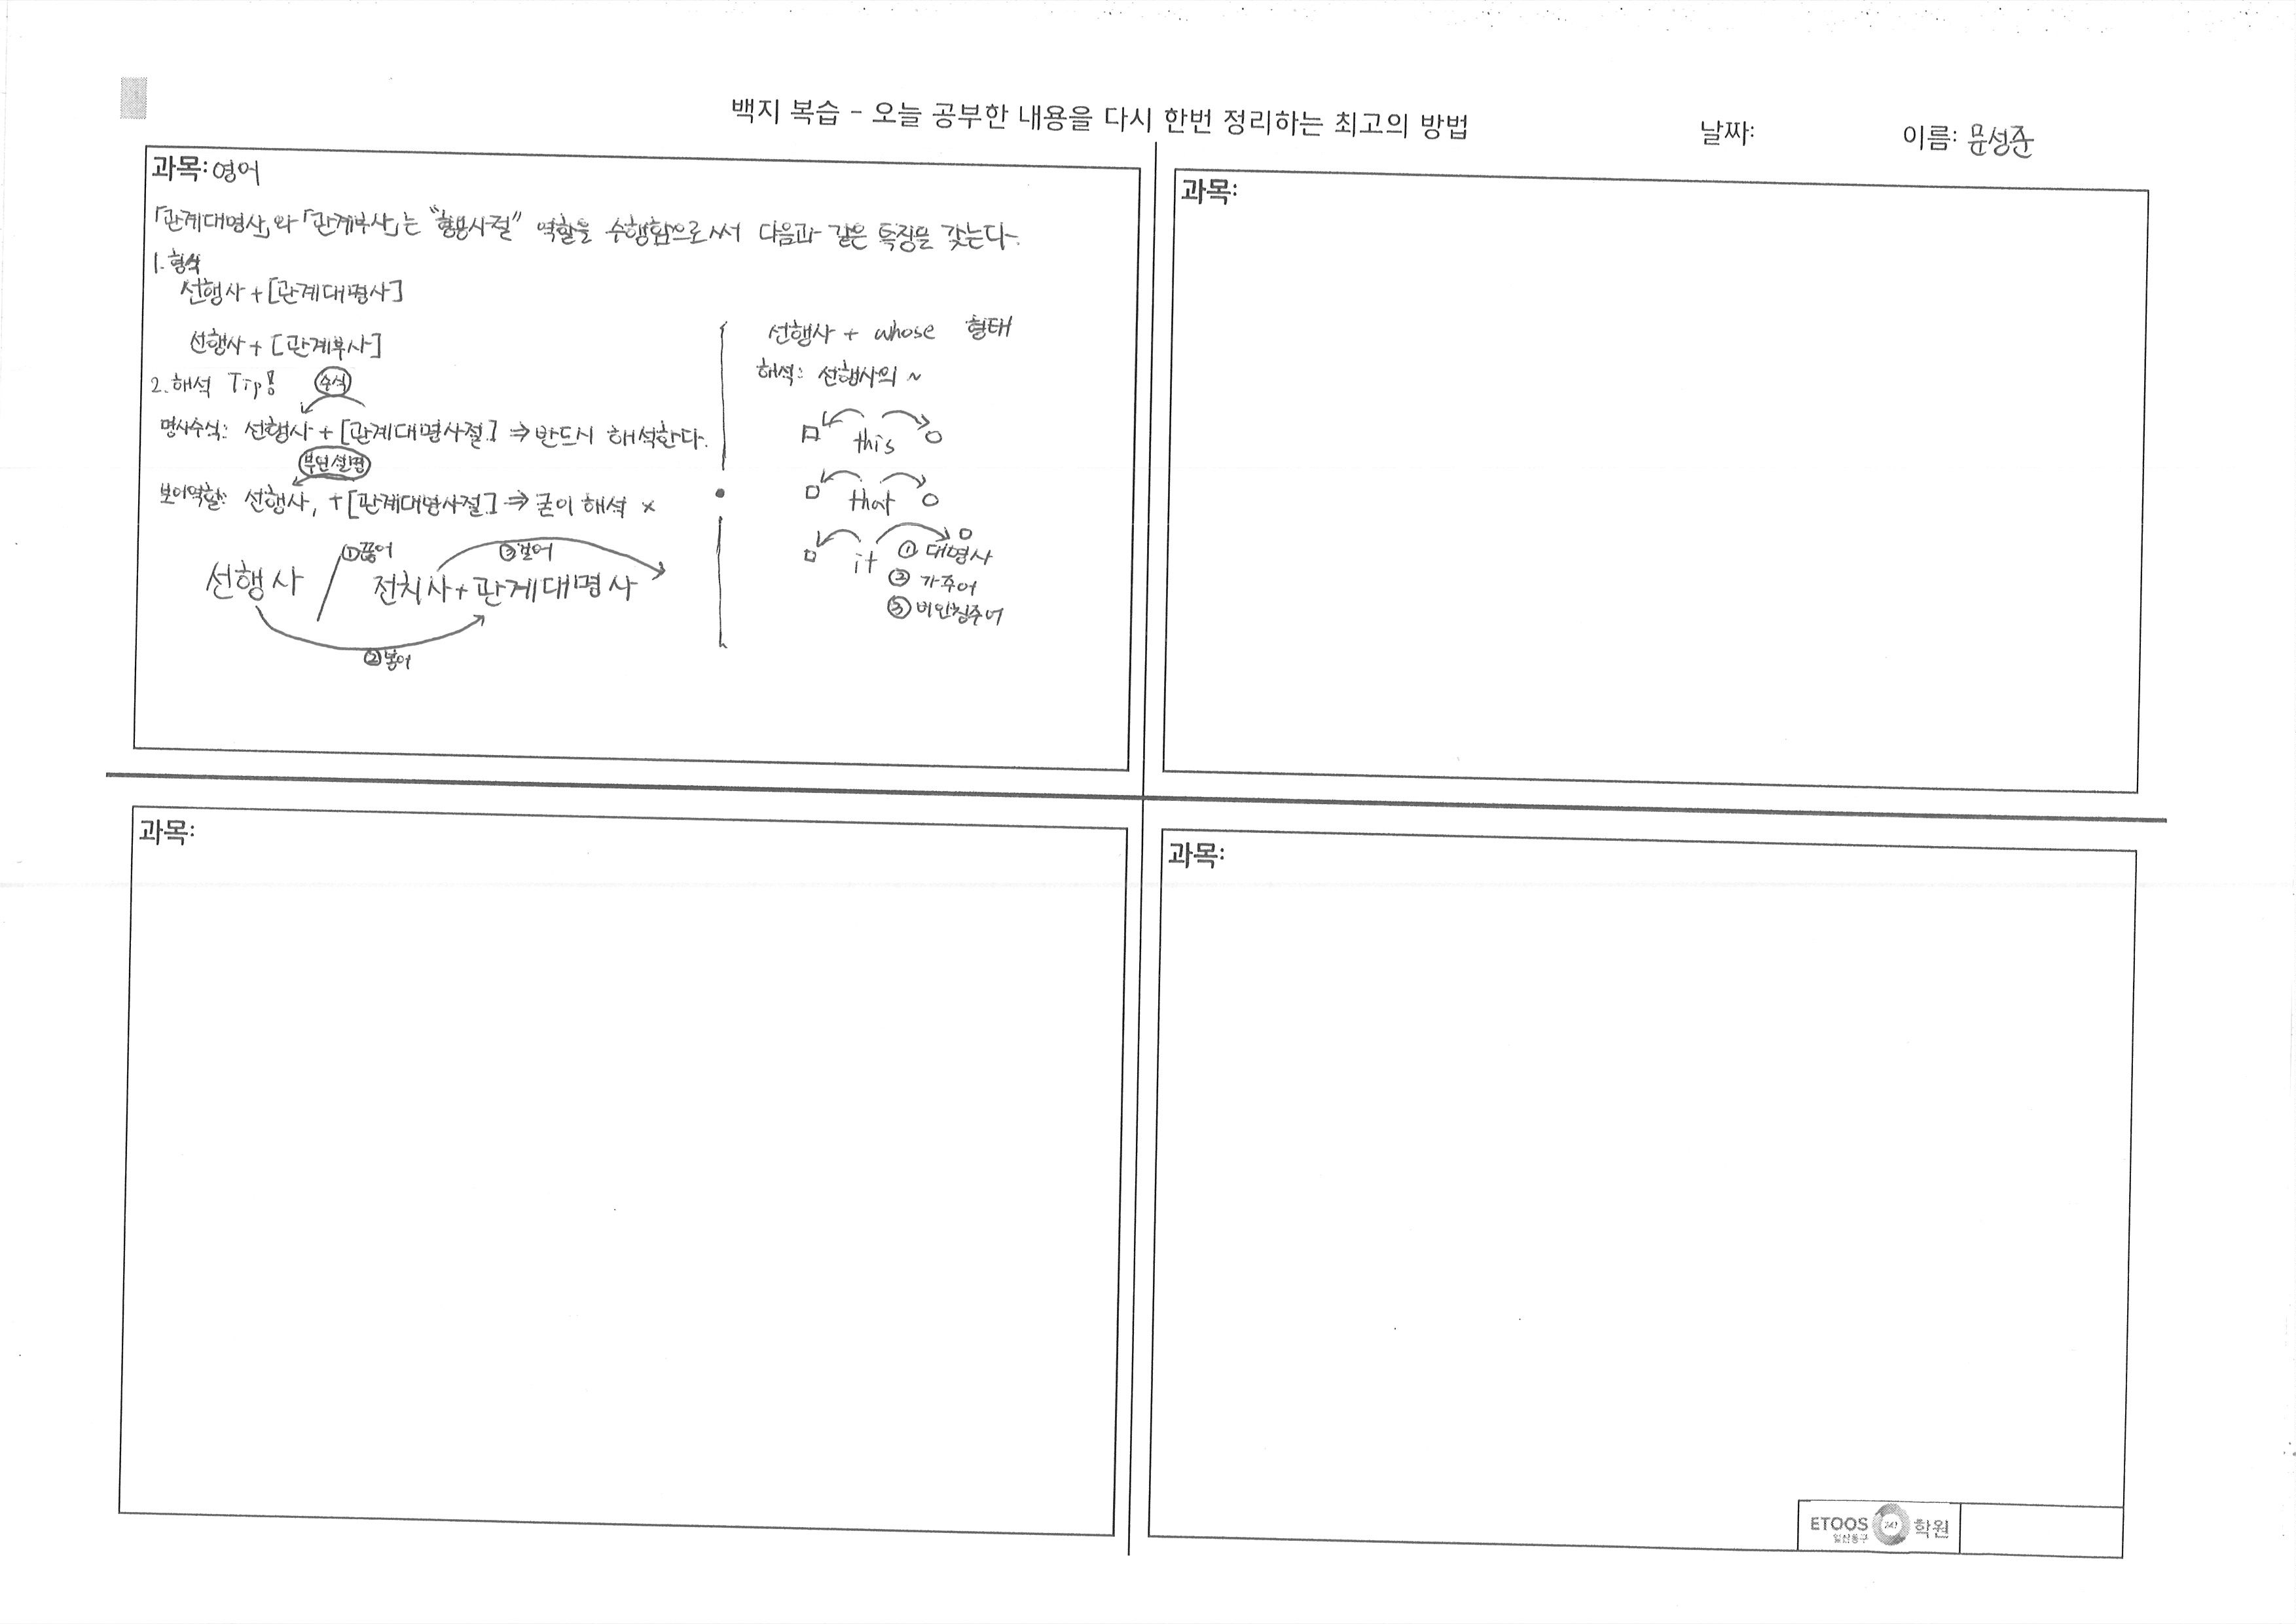 백지 복습 - 오늘 공부한 내용을 다시 한번 정리하는 최고의 방법
날짜:
이름: 문성준
과목: 영어
「관계대명사」와 「관계부사」는 "형용사절" 역할을 수행함으로써 다음과 같은 특징을 갖는다.
1. 형식
선행사 + [관계대명사]
선행사 + [관계부사]
2. 해석 Tip!
수식
명사수식: 선행사 + [관계대명사절] ⇒ 반드시 해석한다.
부연설명
보어역할: 선행사, + [관계대명사절] ⇒ 굳이 해석 ×
① 끊어
③ 걸어
선행사 / 전치사 + 관계대명사
② 붙여
선행사 + whose 형태
해석: 선행사의 ~
□ this ○
□ that ○
□ it ○
① 대명사
② 가주어
③ 비인칭주어
과목:
과목:
과목:
ETOOS 247 학원
일산동구